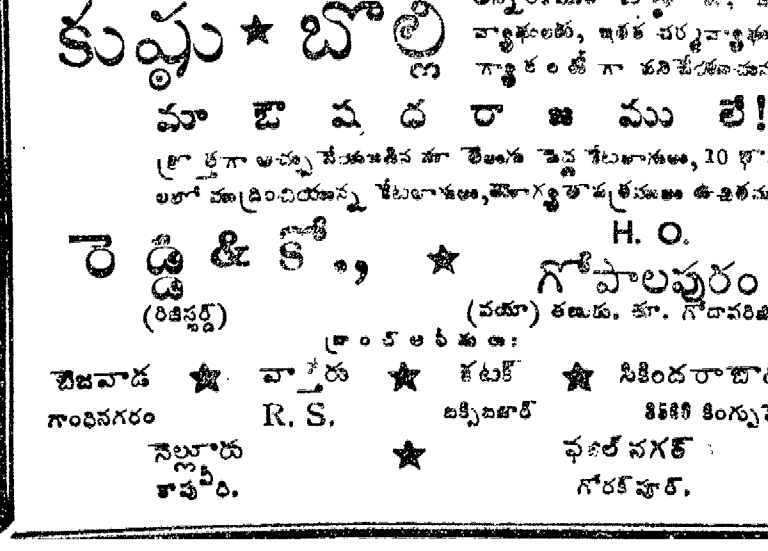 కుష్ఠు ★ బొల్లి
వ్యాధులకు, ఇతర చర్మవ్యాధు
గ్యారంటీ గా పనిచేయుచున
మా ఔ ష ధ రా జ ము లే!
క్రొత్తగా అచ్చు వేయబడిన మా తెలుగు పెద్ద కేటలాగులు, 10 భా
లలో ముద్రించియున్న కేటలాగులు,
రెడ్డి & కో., ★ H. O.
గోపాలపురం
(రిజిస్టర్డ్) (వయా) తణుకు. తూ. గోదావరి
బ్రాంచ్ ఆఫీసు లు:
బెజవాడ ★ ★ కటక్ ★ సికింద రా బా
గాంధినగరం R. S. బక్సిబజార్
నెల్లూరు ★ నగర్
కాపువీధి. గోరక్ పూర్.